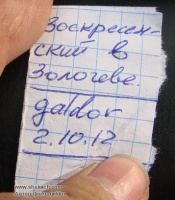 Воскресен-
ский в
Золочеве.
galdor
2.10.12